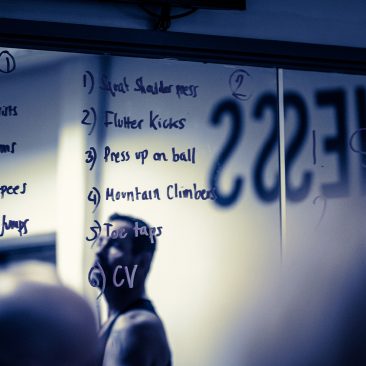 1
pees
Jumps
2
1) Squat Shoulder press
2) Flutter Kicks
3) Press up on ball
4) Mountain Climbers
5) Toe taps
6) CV
NESS